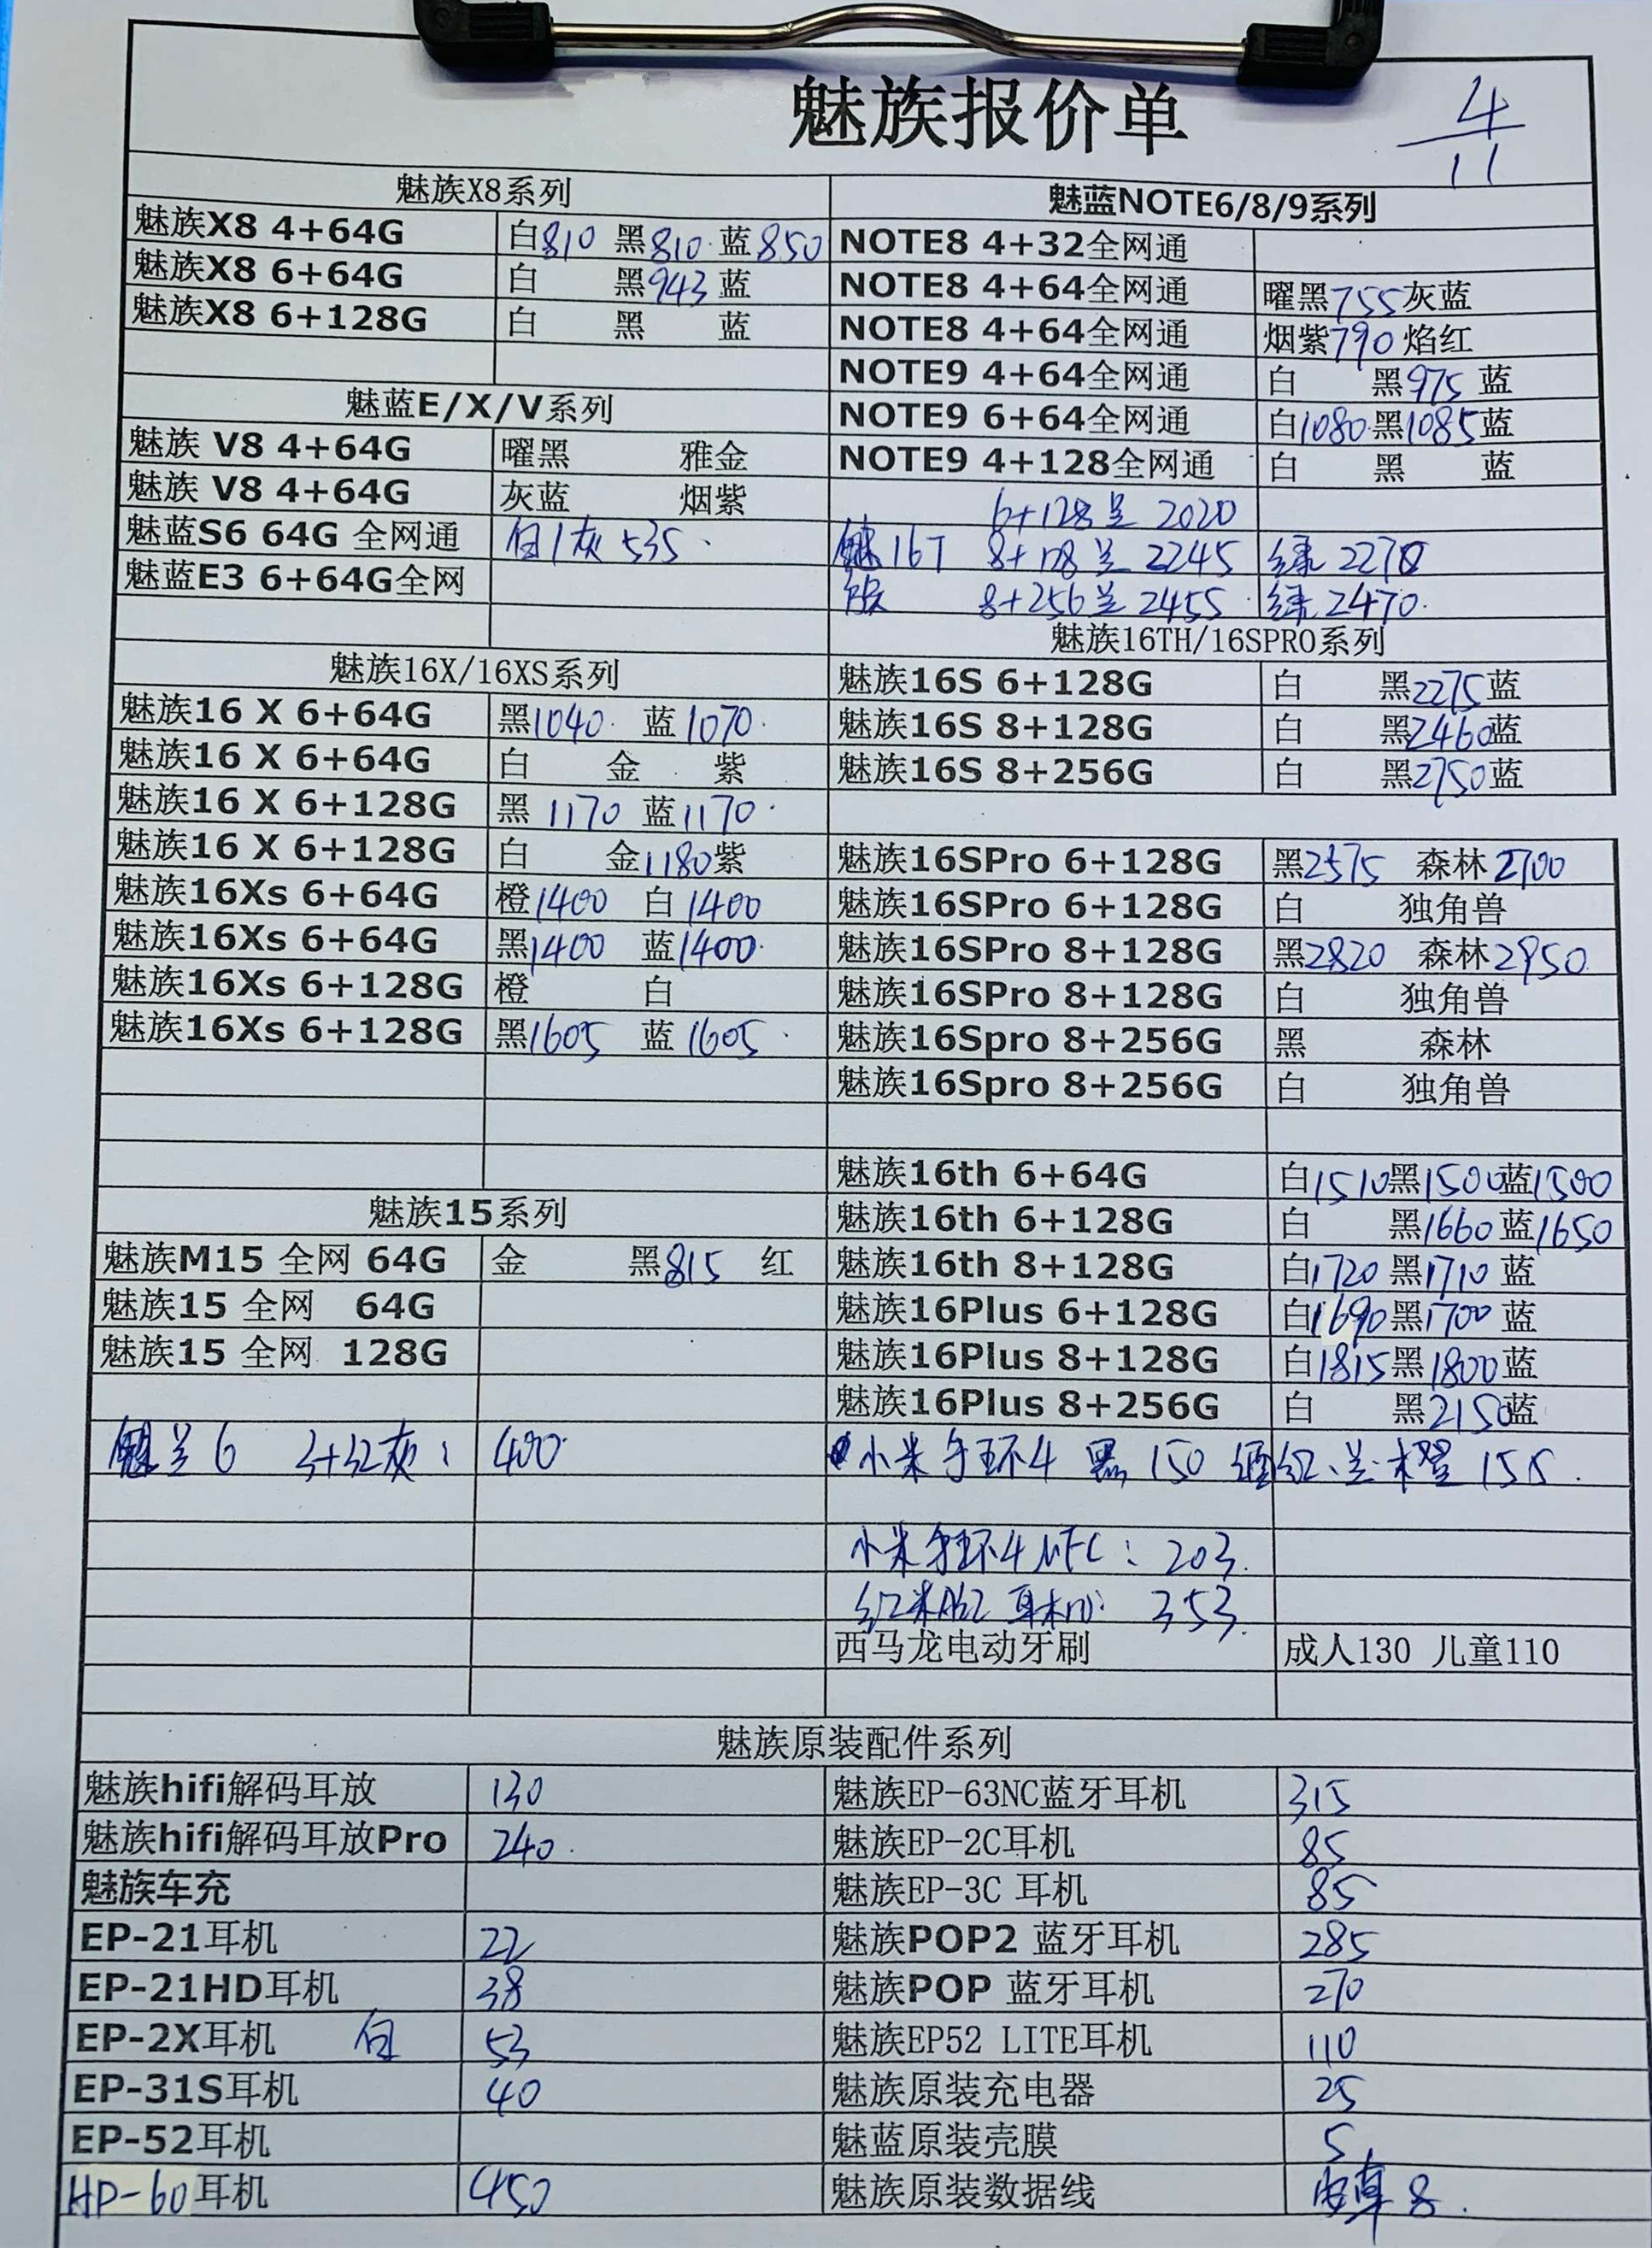 魅族报价单
4/11
魅族X8系列
魅族X8 4+64G 白810 黑810 蓝850
魅族X8 6+64G 白 黑943 蓝
魅族X8 6+128G 白 黑 蓝
魅蓝E/X/V系列
魅族 V8 4+64G 曜黑 雅金
魅族 V8 4+64G 灰蓝 烟紫
魅蓝S6 64G 全网通 白/灰 535
魅蓝E3 6+64G全网
魅族16X/16XS系列
魅族16 X 6+64G 黑1040 蓝1070
魅族16 X 6+64G 白 金 紫
魅族16 X 6+128G 黑 1170 蓝1170
魅族16 X 6+128G 白 金1180紫
魅族16Xs 6+64G 橙1400 白1400
魅族16Xs 6+64G 黑1400 蓝1400
魅族16Xs 6+128G 橙 白
魅族16Xs 6+128G 黑1605 蓝1605
魅族15系列
魅族M15 全网 64G 金 黑815 红
魅族15 全网 64G
魅族15 全网 128G
魅兰6 3+32灰: 400
魅蓝NOTE6/8/9系列
NOTE8 4+32全网通
NOTE8 4+64全网通 曜黑755灰蓝
NOTE8 4+64全网通 烟紫790焰红
NOTE9 4+64全网通 白 黑975 蓝
NOTE9 6+64全网通 白1080黑1085蓝
NOTE9 4+128全网通 白 黑 蓝
6+128兰 2020
魅16T 8+128兰 2245 绿 2270
族 8+256兰 2455 绿 2470
魅族16TH/16SPRO系列
魅族16S 6+128G 白 黑2275蓝
魅族16S 8+128G 白 黑2460蓝
魅族16S 8+256G 白 黑2750蓝
魅族16SPro 6+128G 黑2575 森林2700
魅族16SPro 6+128G 白 独角兽
魅族16SPro 8+128G 黑2820 森林2950
魅族16SPro 8+128G 白 独角兽
魅族16Spro 8+256G 黑 森林
魅族16Spro 8+256G 白 独角兽
魅族16th 6+64G 白1510黑1500蓝1500
魅族16th 6+128G 白 黑1660蓝1650
魅族16th 8+128G 白1720黑1710 蓝
魅族16Plus 6+128G 白1690黑1700 蓝
魅族16Plus 8+128G 白1815黑1800蓝
魅族16Plus 8+256G 白 黑2150蓝
小米手环4 黑 150 酒红、兰、橙 155
小米手环4 NFC: 203
红米 耳机: 353
西马龙电动牙刷 成人130 儿童110
魅族原装配件系列
魅族hifi解码耳放 130
魅族hifi解码耳放Pro 240
魅族车充
EP-21耳机 22
EP-21HD耳机 38
EP-2X耳机 白 53
EP-31S耳机 40
EP-52耳机
HP-60耳机 450
魅族EP-63NC蓝牙耳机 315
魅族EP-2C耳机 85
魅族EP-3C 耳机 85
魅族POP2 蓝牙耳机 285
魅族POP 蓝牙耳机 270
魅族EP52 LITE耳机 110
魅族原装充电器 25
魅蓝原装壳膜 5
魅族原装数据线 8